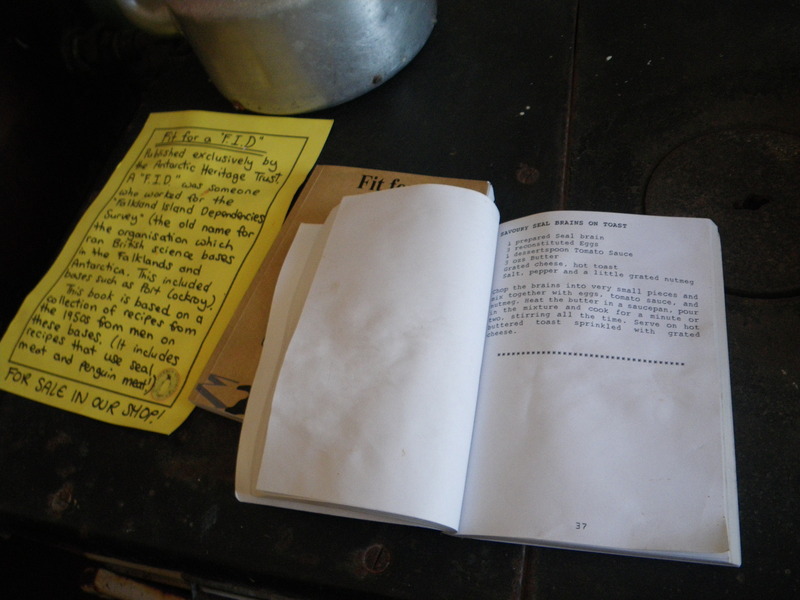 Fit for a "F.I.D"
Published exclusively by
the Antarctic Heritage Trust.
A "F.I.D." was someone
who worked for the
"Falkland Island Dependencies
Survey" (the old name for
the organisation which
ran British science bases
in the Falklands and
Antarctica. This included
bases such as Port Lockroy).
This book is based on a
collection of recipes from
the 1950s from men on
these bases. (It includes
recipes that use seal
meat and penguin meat!)
FOR SALE IN OUR SHOP!
Fit fo
SAVOURY SEAL BRAINS ON TOAST
1 prepared Seal brain
reconstituted Eggs
1 dessertspoon Tomato Sauce
ozs Butter
Grated cheese, hot toast
Salt, pepper and a little grated nutmeg
Chop the brains into very small pieces and
mix together with eggs, tomato sauce, and
nutmeg. Heat the butter in a saucepan, pour
in the mixture and cook for a minute or
two, stirring all the time. Serve on hot
buttered toast sprinkled with grated
cheese.
37